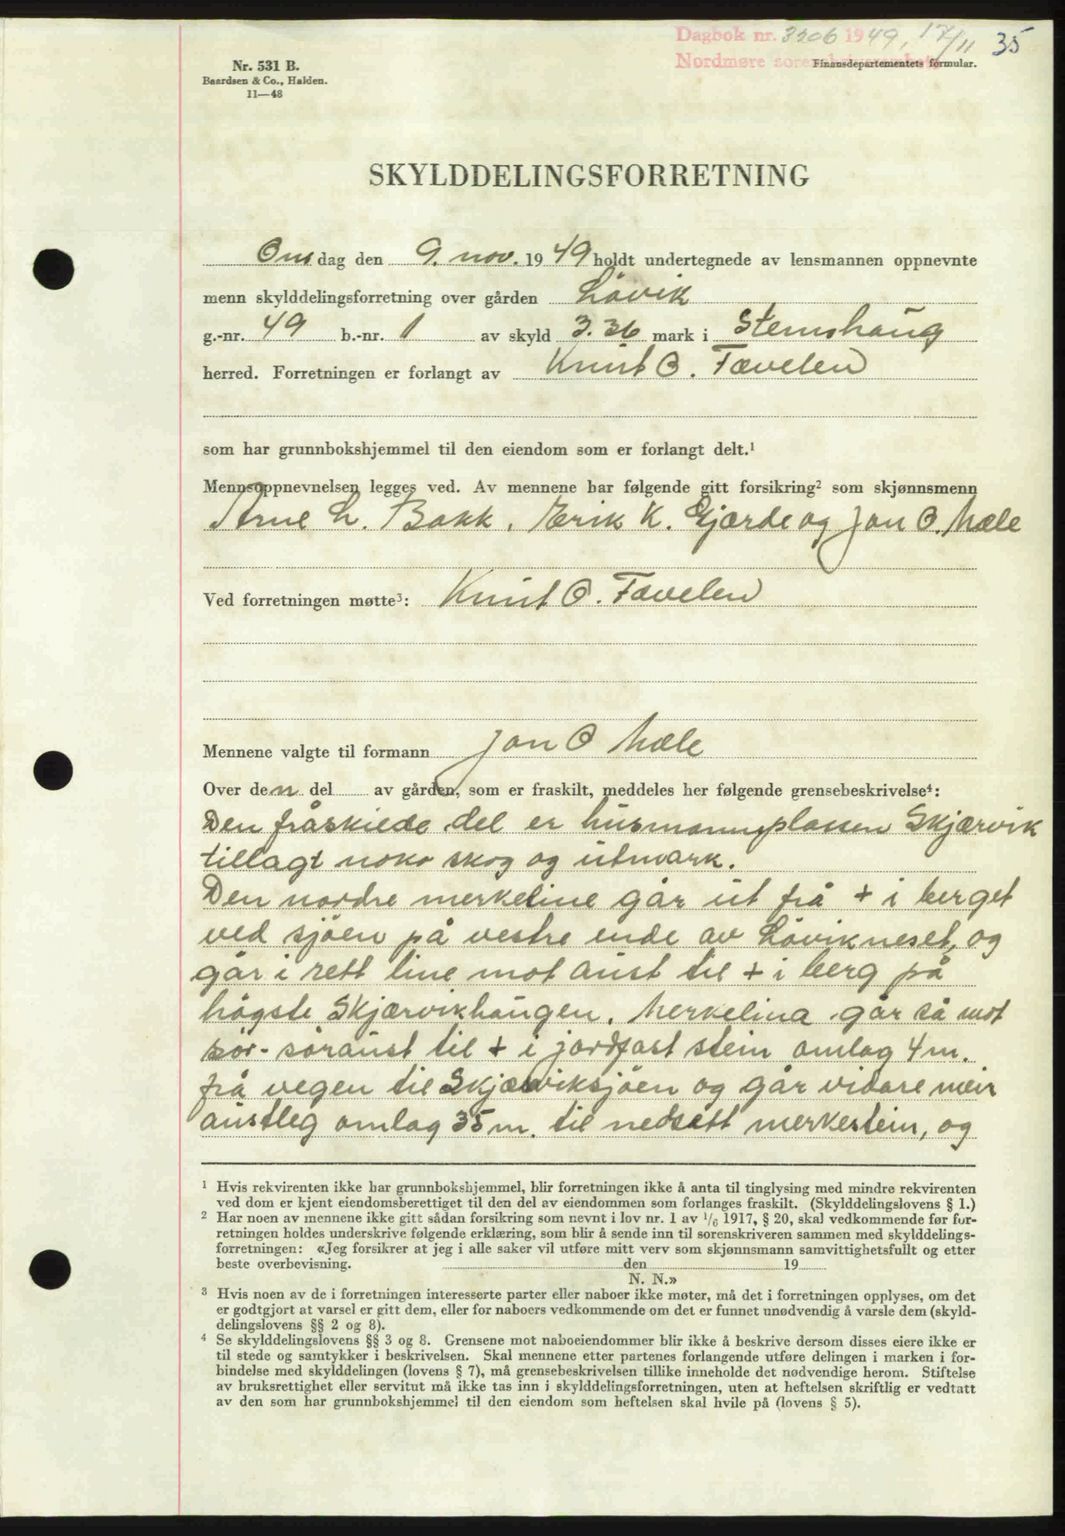 Dagbok nr. 3206 1949, 17/11 35
Nordmøre sorenskriverembete
Nr. 531 B.
Baardsen & Co., Halden.
11—48
Finansdepartementets formular.
SKYLDDELINGSFORRETNING
Onsdag den 9. nov. 1949 holdt undertegnede av lensmannen oppnevnte
menn skylddelingsforretning over gården Lövik
g.-nr. 49 b.-nr. 1 av skyld 3.36 mark i Stemshaug
herred. Forretningen er forlangt av Knut O. Tævelen
som har grunnbokshjemmel til den eiendom som er forlangt delt.¹
Mennsoppnevnelsen legges ved. Av mennene har følgende gitt forsikring² som skjønnsmenn
Arne L. Bakk, Erik K. Gjærde og Jon O. Mæle
Ved forretningen møtte³: Knut O. Tævelen
Mennene valgte til formann Jon O Mæle
Over den del av gården, som er fraskilt, meddeles her følgende grensebeskrivelse⁴:
Den fråskilde del er husmannsplassen Skjærvik
tillagt noko skog og utmark.
Den nordre merkeline går ut frå + i berget
ved sjöen på vestre ende av Lövikneset, og
går i rett line mot aust til + i berg på
högste Skjærvikhaugen. Merkelina går så mot
sör-söraust til + i jordfast stein omlag 4 m.
frå vegen til Skjærviksjöen og går vidare meir
austleg omlag 35 m. til nedsett merkestein, og
¹ Hvis rekvirenten ikke har grunnbokshjemmel, blir forretningen ikke å anta til tinglysing med mindre rekvirenten
ved dom er kjent eiendomsberettiget til den del av eiendommen som forlanges fraskilt. (Skylddelingslovens § 1.)
² Har noen av mennene ikke gitt sådan forsikring som nevnt i lov nr. 1 av 1/6 1917, § 20, skal vedkommende før for-
retningen holdes underskrive følgende erklæring, som blir å sende inn til sorenskriveren sammen med skylddelings-
forretningen: «Jeg forsikrer at jeg i alle saker vil utføre mitt verv som skjønnsmann samvittighetsfullt og etter
beste overbevisning. den 19
N. N.»
³ Hvis noen av de i forretningen interesserte parter eller naboer ikke møter, må det i forretningen opplyses, om det
er godtgjort at varsel er gitt dem, eller for naboers vedkommende om det er funnet unødvendig å varsle dem (skyld-
delingslovens §§ 2 og 8).
⁴ Se skylddelingslovens §§ 3 og 8. Grensene mot naboeiendommer blir ikke å beskrive dersom disses eiere ikke er
til stede og samtykker i beskrivelsen. Skal mennene etter partenes forlangende utføre delingen i marken i for-
bindelse med skylddelingen (lovens § 7), må grensebeskrivelsen tillike inneholde det nødvendige herom. Stiftelse
av bruksrettighet eller servitut må ikke tas inn i skylddelingsforretningen, uten at heftelsen skriftlig er vedtatt
av den som har grunnbokshjemmel til den eiendom som heftelsen skal hvile på (lovens § 5).